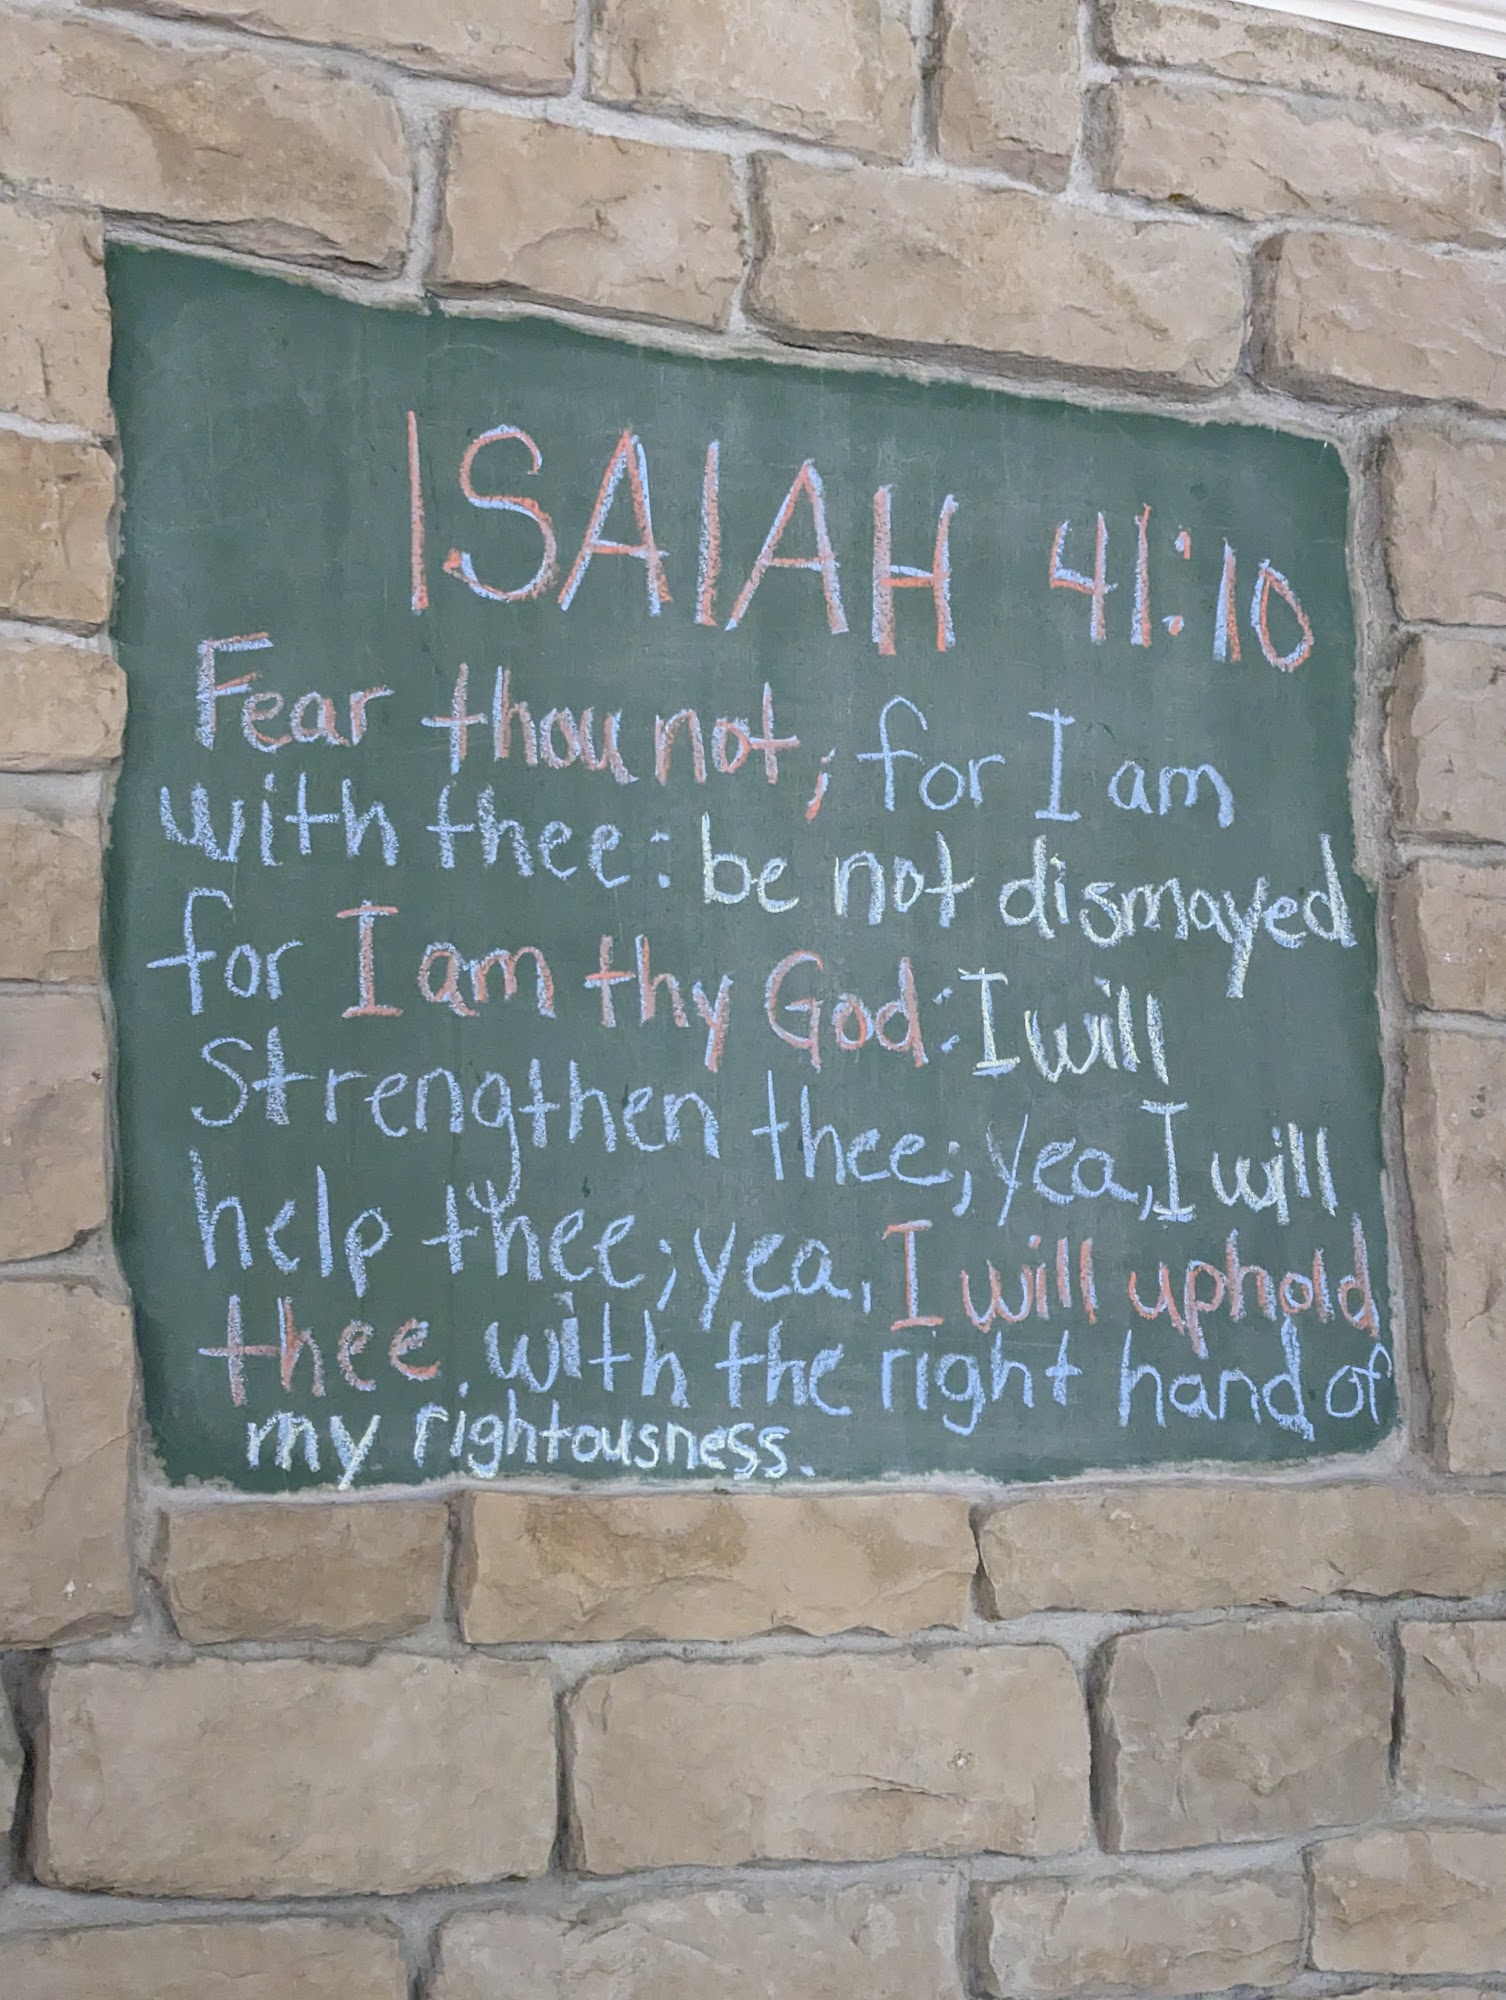 ISAIAH 41:10
Fear thou not; for I am
with thee: be not dismayed
for I am thy God: I will
Strengthen thee; yea, I will
help thee; yea, I will uphold
thee with the right hand of
my rightousness.